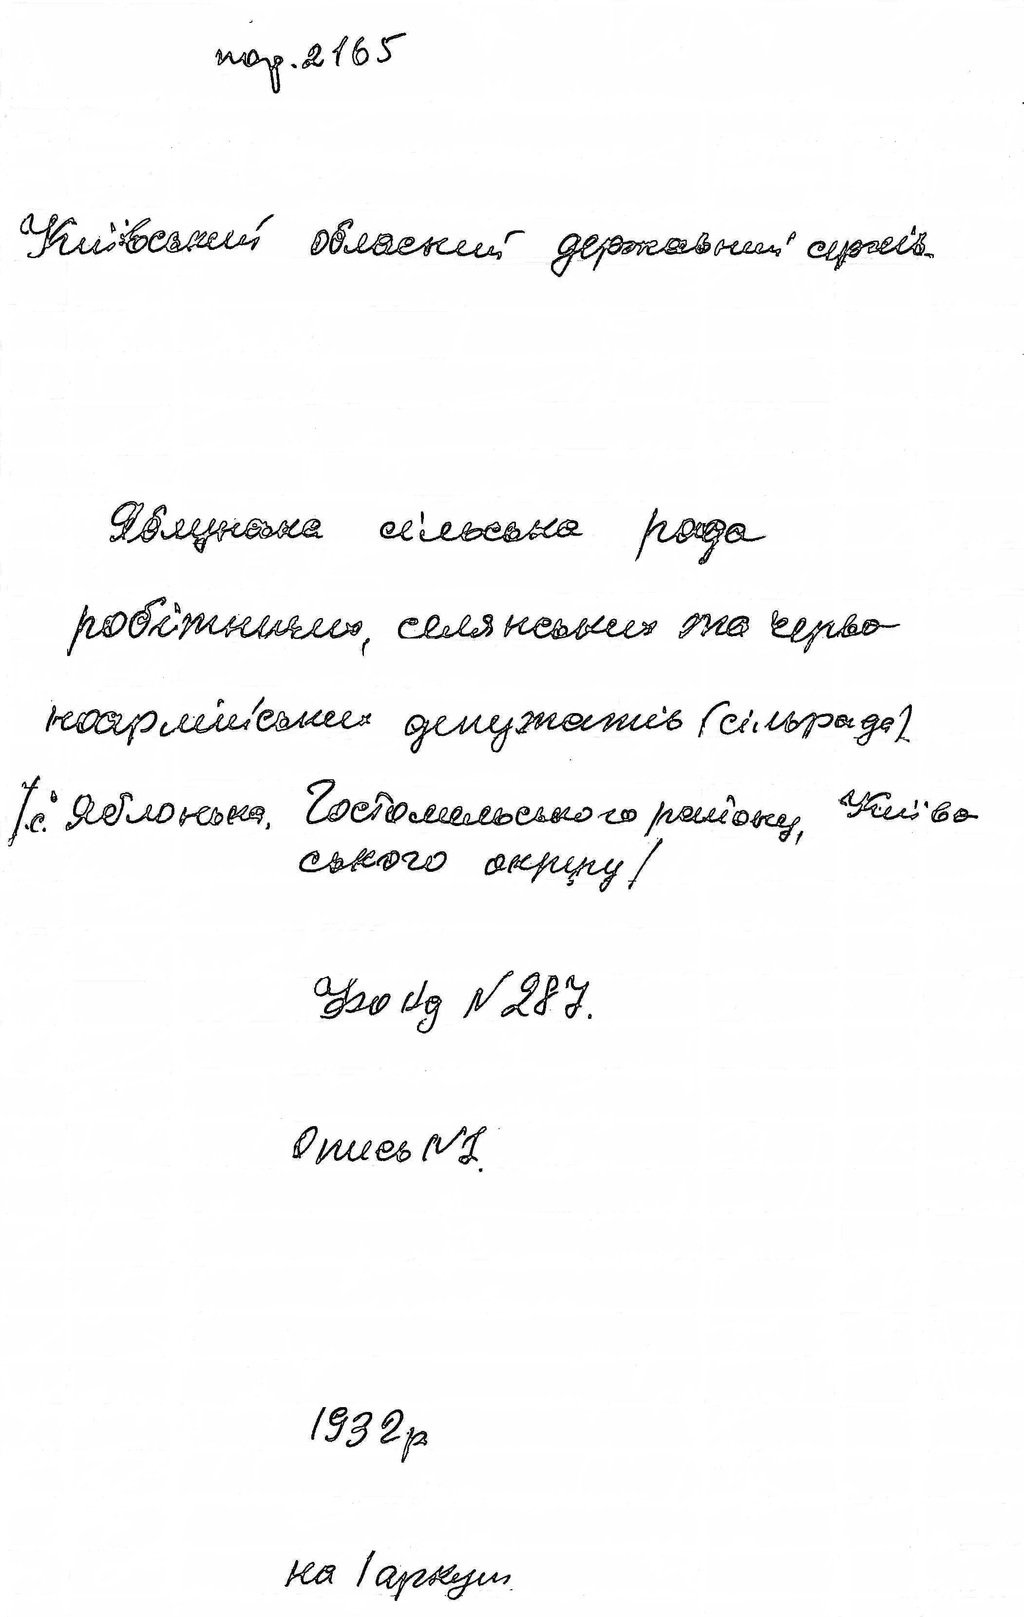 пор. 2165
Київський обласний державний архів
Яблунська сільська рада
робітничих, селянських та черво
ноармійських депутатів (сільрада)
/с. Яблонька, Гостомельського району, Київ
ського округу/
Фонд № 287.
Опись № 1.
1932р
на 1 аркуш.